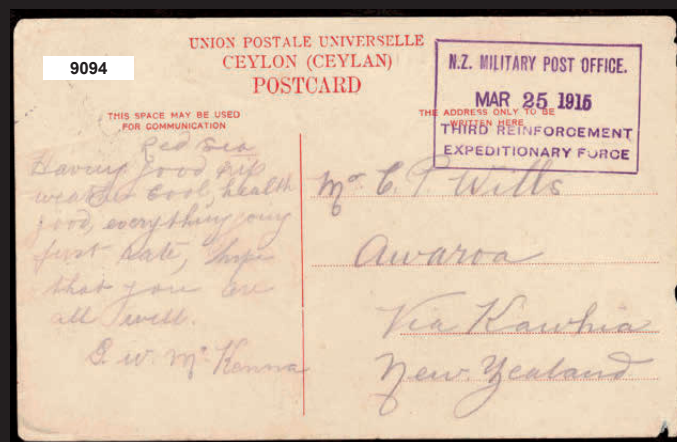 9094
UNION POSTALE UNIVERSELLE
CEYLON (CEYLAN)
POSTCARD
N.Z. MILITARY POST OFFICE.
MAR 25 1915
THIRD REINFORCEMENT
EXPEDITIONARY FORCE
THIS SPACE MAY BE USED
FOR COMMUNICATION
THE ADDRESS ONLY TO BE
WRITTEN HERE
Red Sea
Having good trip
weather cool, health
good, everything
first rate, hope
that you are
all well.
G. W. McKenna
Mr C. P. Wills
Awaroa
Via Kawhia
New Zealand